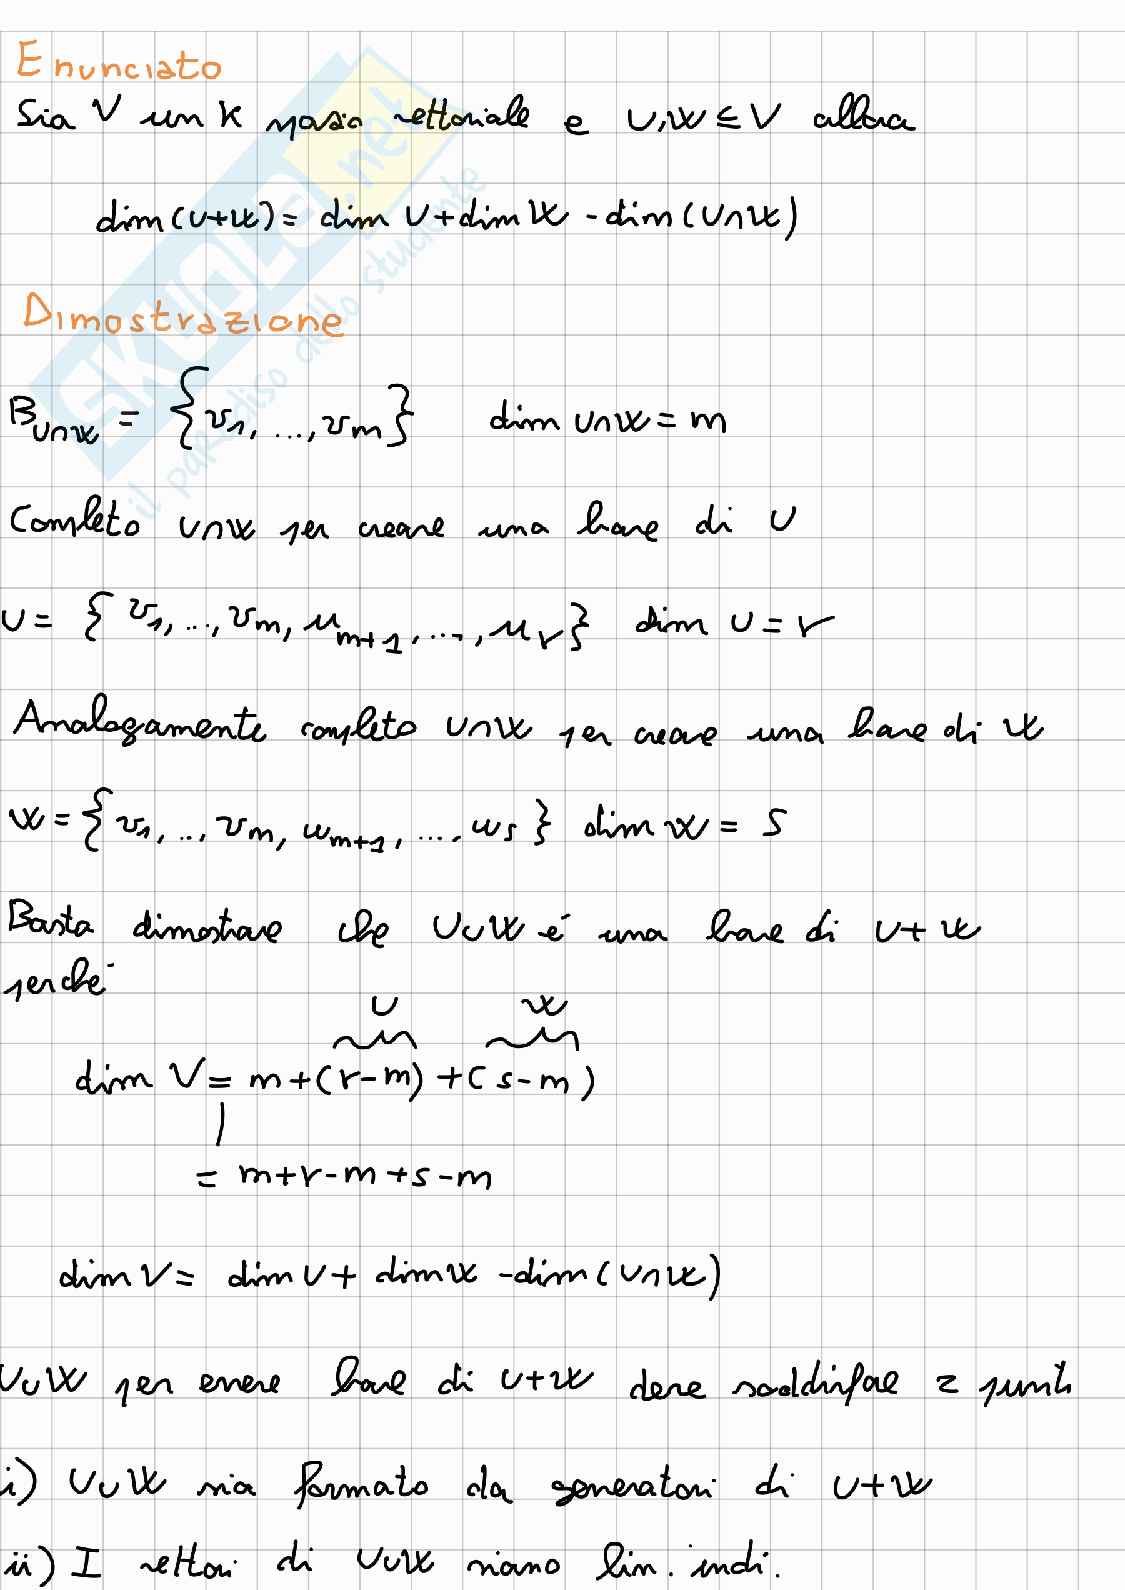 Enunciato
Sia V un K spazio vettoriale e U,W ≤ V allora
dim(U+W) = dim U + dim W - dim(U∩W)
Dimostrazione
B_{U∩W} = {v_1, ..., v_m} dim U∩W = m
Completo U∩W per creare una base di U
U = {v_1, .., v_m, u_{m+1}, ..., u_r} dim U = r
Analogamente completo U∩W per creare una base di W
W = {v_1, .., v_m, w_{m+1}, ..., w_s} dim W = s
Basta dimostrare che U∪W é una base di U+W
perché
U W
dim V = m+(r-m)+(s-m)
= m+r-m+s-m
dim V = dim U + dim W - dim(U∩W)
U∪W per essere base di U+W deve soddisfare 2 punti
i) U∪W sia formato da generatori di U+W
ii) I vettori di U∪W siano lin. indi.
SKUOLA.net
il paradiso dello studente